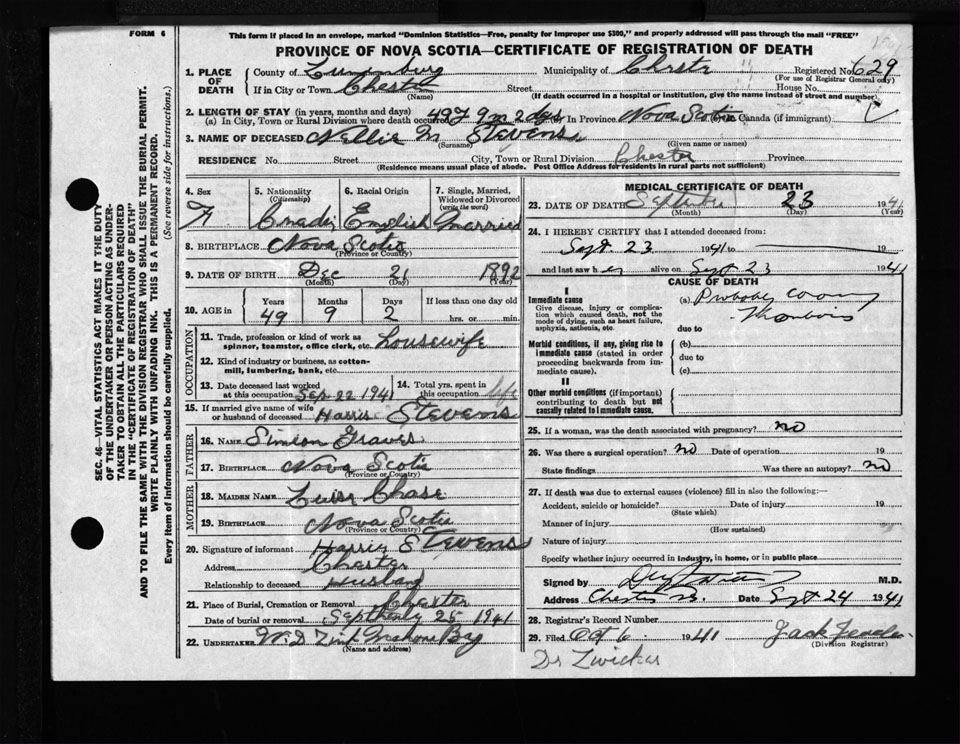 FORM 6
This form if placed in an envelope, marked "Dominion Statistics—Free, penalty for improper use $300," and properly addressed will pass through the mail "FREE"
PROVINCE OF NOVA SCOTIA—CERTIFICATE OF REGISTRATION OF DEATH
SEC. 46—VITAL STATISTICS ACT MAKES IT THE DUTY
OF THE UNDERTAKER OR PERSON ACTING AS UNDER-
TAKER TO OBTAIN ALL THE PARTICULARS REQUIRED
IN THE "CERTIFICATE OF REGISTRATION OF DEATH"
AND TO FILE THE SAME WITH THE DIVISION REGISTRAR WHO SHALL ISSUE THE BURIAL PERMIT.
WRITE PLAINLY WITH UNFADING INK. THIS IS A PERMANENT RECORD.
Every item of information should be carefully supplied. (See reverse side for instructions.)
1. PLACE OF DEATH
County of Lunenburg Municipality of Chester Registered No. 629
(For use of Registrar General only)
If in City or Town Chester Street House No.
(Name) (If death occurred in a hospital or institution, give the name instead of street and number)
2. LENGTH OF STAY (in years, months and days)
(a) In City, Town or Rural Division where death occurred 49 y 9 m 2 dys In Province Nova Scotia Canada (if immigrant)
3. NAME OF DECEASED Nellie M. Stevens
(Surname) (Given name or names)
RESIDENCE No. Street City, Town or Rural Division Chester Province
(Residence means usual place of abode. Post Office Address for residents in rural parts not sufficient)
4. Sex
F
5. Nationality
(Citizenship)
6. Racial Origin
English
7. Single, Married, Widowed or Divorced
(write the word)
Married
8. BIRTHPLACE Nova Scotia
(Province or Country)
9. DATE OF BIRTH Dec 21 1892
(Month) (Day) (Year)
10. AGE Years Months Days If less than one day old
49 9 2 hrs. or min.
OCCUPATION
11. Trade, profession or kind of work as
spinner, teamster, office clerk, etc. Housewife
12. Kind of industry or business, as cotton-
mill, lumbering, bank, etc.
13. Date deceased last worked
at this occupation Sep 22 1941
14. Total yrs. spent in
this occupation life
15. If married give name of wife
or husband of deceased Harris Stevens
FATHER
16. NAME Simeon Graves
17. BIRTHPLACE Nova Scotia
(Province or Country)
MOTHER
18. MAIDEN NAME Chase
19. BIRTHPLACE Nova Scotia
(Province or Country)
20. Signature of informant Harris Stevens
Address Chester
Relationship to deceased Husband
21. Place of Burial, Cremation or Removal Chester
Date of burial or removal 25 1941
22. UNDERTAKER W D Zink Mahone Bay
(Name and address)
MEDICAL CERTIFICATE OF DEATH
23. DATE OF DEATH September 23 1941
(Month) (Day)
24. I HEREBY CERTIFY that I attended deceased from:
Sept. 23 1941 to 19
and last saw her alive on Sept 23 1941
CAUSE OF DEATH
I
Immediate cause
Give disease, injury or compli-
cation which caused death, not the
mode of dying, such as heart failure,
asphyxia, asthenia, etc.
(a) Probably coronary
Thrombosis
due to
Morbid conditions, if any, giving rise to
immediate cause (stated in order
proceeding backwards from im-
mediate cause).
(b)
due to
(c)
II
Other morbid conditions (if important)
contributing to death but not
causally related to immediate cause.
25. If a woman, was the death associated with pregnancy? no
26. Was there a surgical operation? no Date of operation 19
State findings Was there an autopsy? no
27. If death was due to external causes (violence) fill in also the following:—
Accident, suicide or homicide? Date of injury 19
(State which)
Manner of injury
(How sustained)
Nature of injury
Specify whether injury occurred in industry, in home, or in public place
Signed by M.D.
Address Chester N.S. Date Sept 24 1941
28. Registrar's Record Number
29. Filed Oct 6 1941 Jack
(Division Registrar)
Dr Zwicker